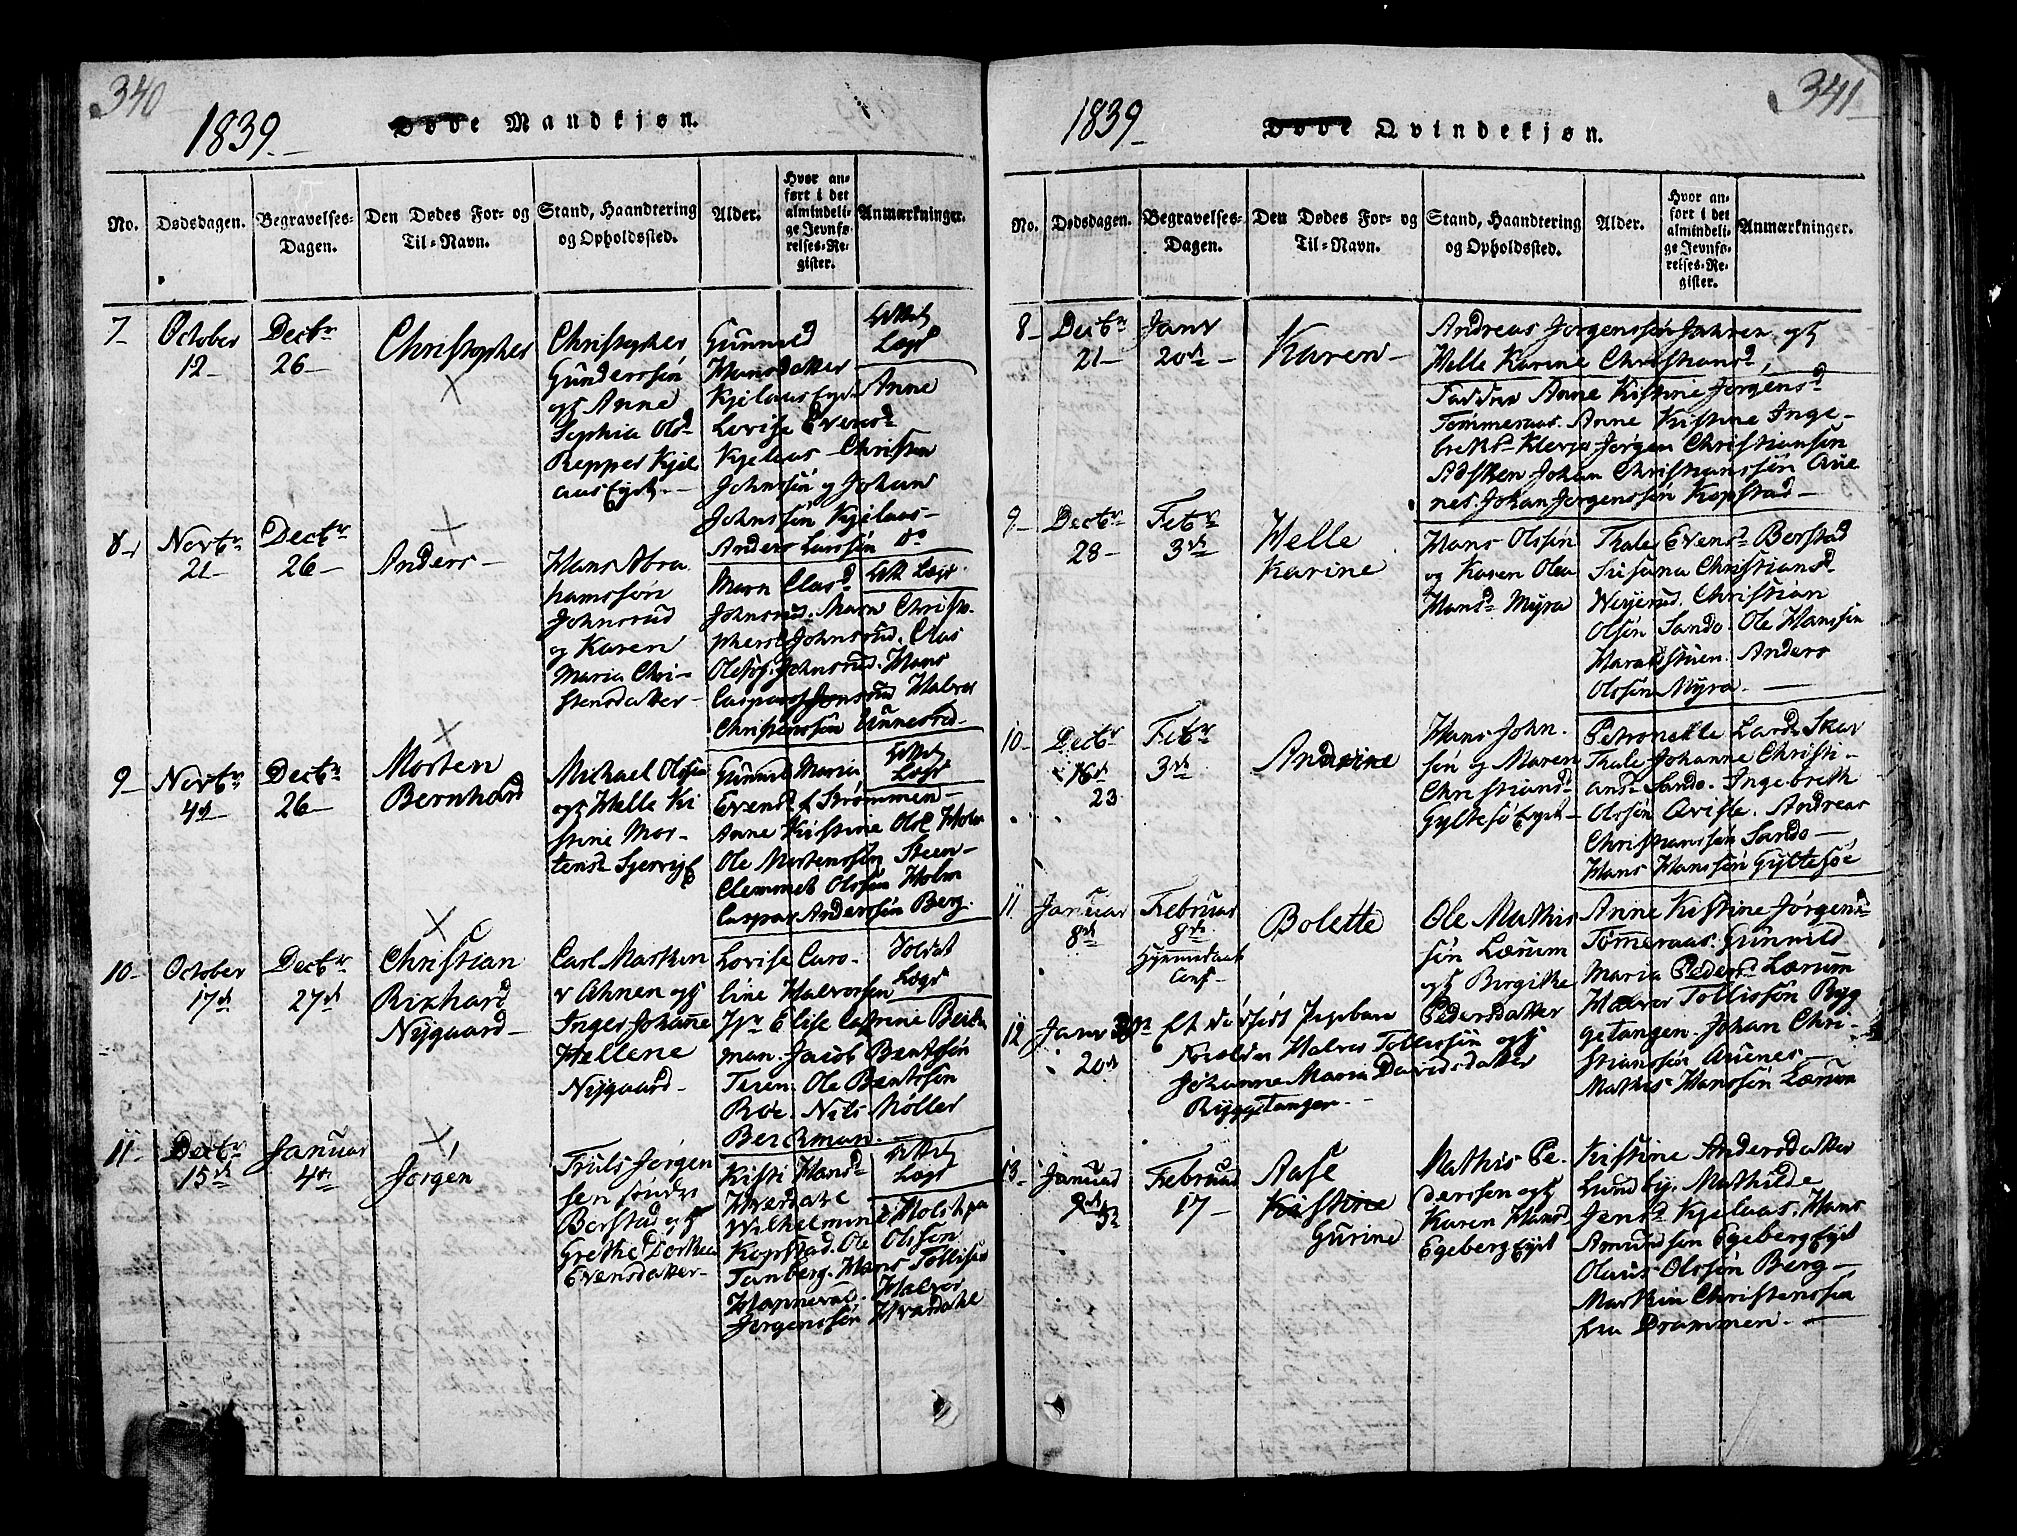 340
1839
Døde Mandkjøn.
No.
Dødsdagen.
Begravelses-
Dagen.
Den Dødes For- og
Til-Navn.
Stand, Haandtering
og Opholdssted.
Alder.
Hvor an-
ført i det
almindeli-
ge Jevnfø-
relses-Re-
gister.
Anmærkninger.
7
October
12
Decbr
26
Christopher
Christopher
Gunderssøn
og Anne
Sophia Ols
Repper Kjel
aas Eyet
Gunnild
Hansdatter
Kjelaas Eyet Anne
Lovise Evens
Kjelaas Christen
Johnssøn og Johan
Johnssøn Kjelaas
Anders Larssøn do
8
Novbr
21
Decbr
26
Anders
Hans Abra
hamssøn
Johnsrud
og Karen
Maria Chri-
stensdatter
Maren Clas
Johnsrud. Maren Christo-
phers Johnsrud. Clas
Johnsrud. Hans
Halvor
Christenssøn
9
Novbr
4
Decbr
26
Morten
Bernhard
Michael Olssen
og Helle Ki
stine Mor-
tens
Gunnild Maria
Evens Strømmen
Anne Kistine Ols Holm
Ole Mortenssøn Steen
Clemmet Olssøn Holm
Caspar Anderssøn Berg.
10
October
17
Decbr
27
Christian
Richard
Nygaard
Carl Martin
v Ahnen og
Inger Johanne
Hellene
Nygaard
Lovise Caro-
line Halvorsen
Elise Catrine
Jacob Bentssøn
Teien. Ole Bentssøn
Roe. Nils Møller
Berckman.
Soldat
Lægd
11
Decbr
15
Januar
4
Jørgen
Truls Jørgen
sen søndre
Borstad og
Grethe Dorthea
Evensdatter
Kisti Hans
Hvedahle
Wilhelmine
Kopstad. Ole Olssøn
Tanberg. Hans Tollifsen
Hanneval. Halvor
Jørgenssøn Hvardahl
341
1839
Døde Qvindekjøn.
No.
Dødsdagen.
Begravelses-
Dagen.
Den Dødes For- og
Til-Navn.
Stand, Haandtering
og Opholdssted.
Alder.
Hvor an-
ført i det
almindeli-
ge Jevnfø-
relses-Re-
gister.
Anmærkninger.
8
Decbr
21
Janr
20
Karen
Andreas Jørgenssøn Jahren, og
Helle Karine Christians
Faddere Anne Kistine Jørgens
Tømmeraas. Anne Kistine Inge-
brets Klevja Jørgen Christianssøn
Adsken Johan Christianssøn Aue
nes. Johan Jørgenssøn Kopstad
9
Decbr
28
Febr
3
Helle
Karine
Hans Olssøn
og Karen Olea
Hans Myra
Thale Evens Borstad
Susana Christians
Christian
Olsøn Sando. Ole Hanssøn
Haraldstuen. Anders
Olssøn Myra.
10
Decbr
23
Febr
3
Andrine
Hans John
søn og Maren
Christians
Gyltesø Eyet
Petronelle Lars Skar
Thale Johanne Christi-
ans Sando. Ingebreth
Olssøn Andreas
Christianssøn Sando
Hans Hanssøn Gyltesøe
11
Januar
8
Februar
8
Bolette
Ole Mathis
søn Lærum
og Birgithe
Pedersdatter
Anne Kistine Jørgens
Tømmeraas. Gunnild
Maria Peders Lærum
Halvor Tollissøn Ryg
getangen. Johan Chri-
stianssøn Auenes
Mathis Hanssøn Lærum
12
Janr
20
Et dødfødt Pigebarn
Halvor Tollissøn og
Johanne Maria Davidsdatter
Ryggetangen
13
Januar
Februar
17
Aase
Kistine
Gurine
Mathis Pe-
derssen og
Karen Hans
Egeberg Eyet
Kistine Andersdatter
Lundby. Mathilde
Jens Kjelaas. Hans
Amundsøn Egeberg Eyet
Olaus Olssøn Berg
Martin Christenssøn
fra Drammen.